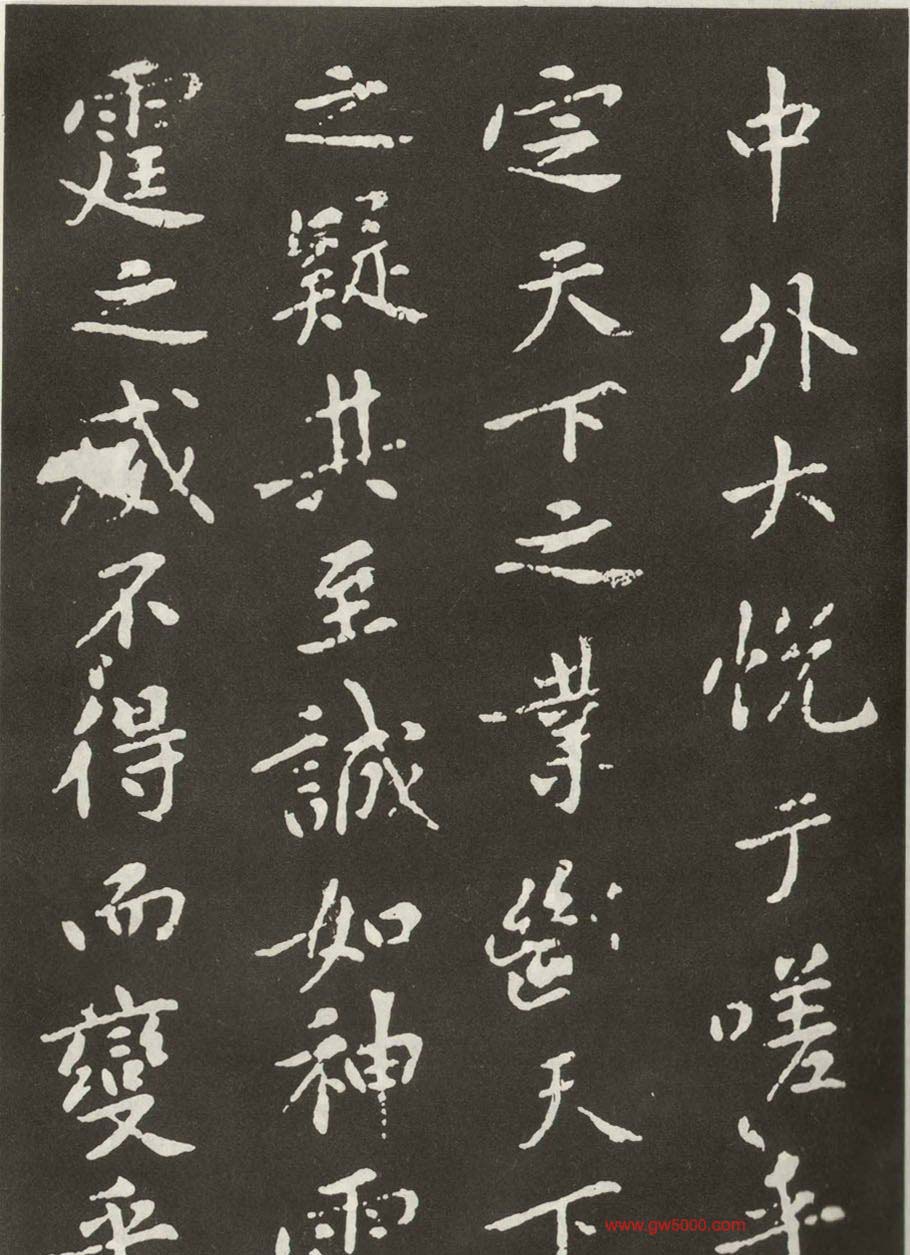 中外大悦于嗟乎
定天下之業斷天下
之疑其至誠如神雷
霆之威不得而變乎
www.gw5000.com